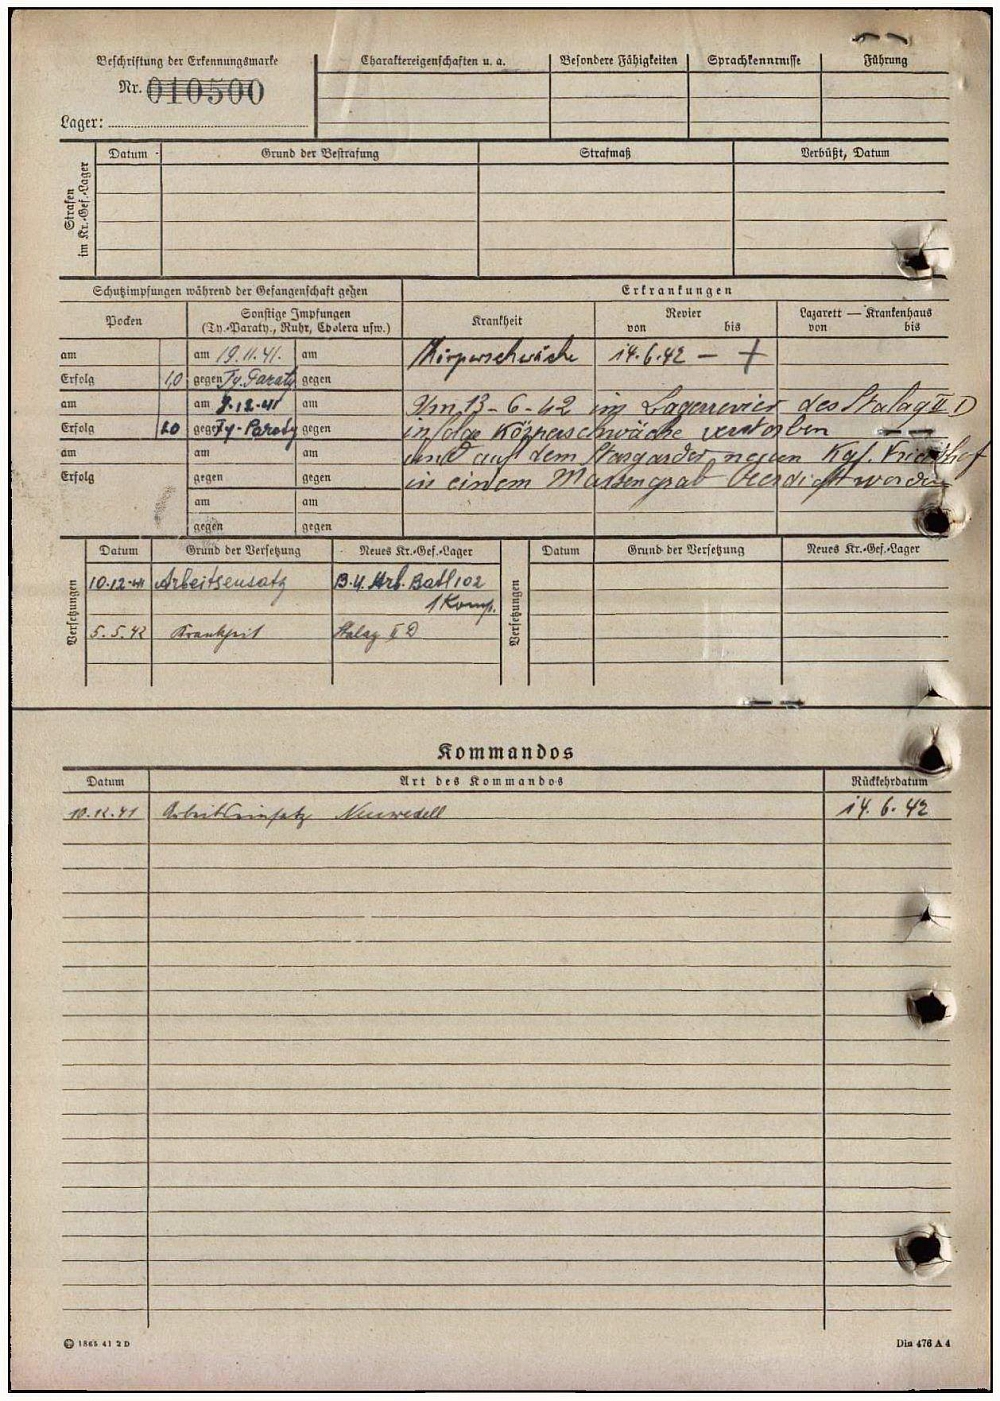 Beschriftung der Erkennungsmarke
Nr. 010500
Lager:
Charaktereigenschaften u. a.
Besondere Fähigkeiten
Sprachkenntnisse
Führung
Strafen im Kr.-Gef.-Lager
Datum
Grund der Bestrafung
Strafmaß
Verbüßt, Datum
Schutzimpfungen während der Gefangenschaft gegen
Erkrankungen
Pocken
Sonstige Impfungen
(Ty.-Paraty., Ruhr, Cholera usw.)
Krankheit
Revier
von bis
Lazarett — Krankenhaus
von bis
am am 19.11.41. am
Körperschwäche 14.6.42 — +
Erfolg gegen Ty. Paraty gegen
am am 9.12.41 am
Am 13-6-42 im Lagerrevier des Stalag II D
Erfolg gegen Ty-Paraty gegen
infolge Körperschwäche verstorben
am am am
und auf dem Stargarder neuen Kgf. Friedhof
Erfolg gegen gegen
in einem Massengrab beerdigt worden
am am
gegen gegen
Versetzungen
Datum Grund der Versetzung Neues Kr.-Gef.-Lager
10.12.41 Arbeitsensatz B.u. Arb. Batl 102
1 Komp.
5.5.42 Krankheit Stalag II D
Versetzungen
Datum Grund der Versetzung Neues Kr.-Gef.-Lager
Kommandos
Datum Art des Kommandos Rückkehrdatum
10.12.41 Arbeitseinsatz Neuwedell 14.6.42
1865 41 2 D
Din 476 A 4